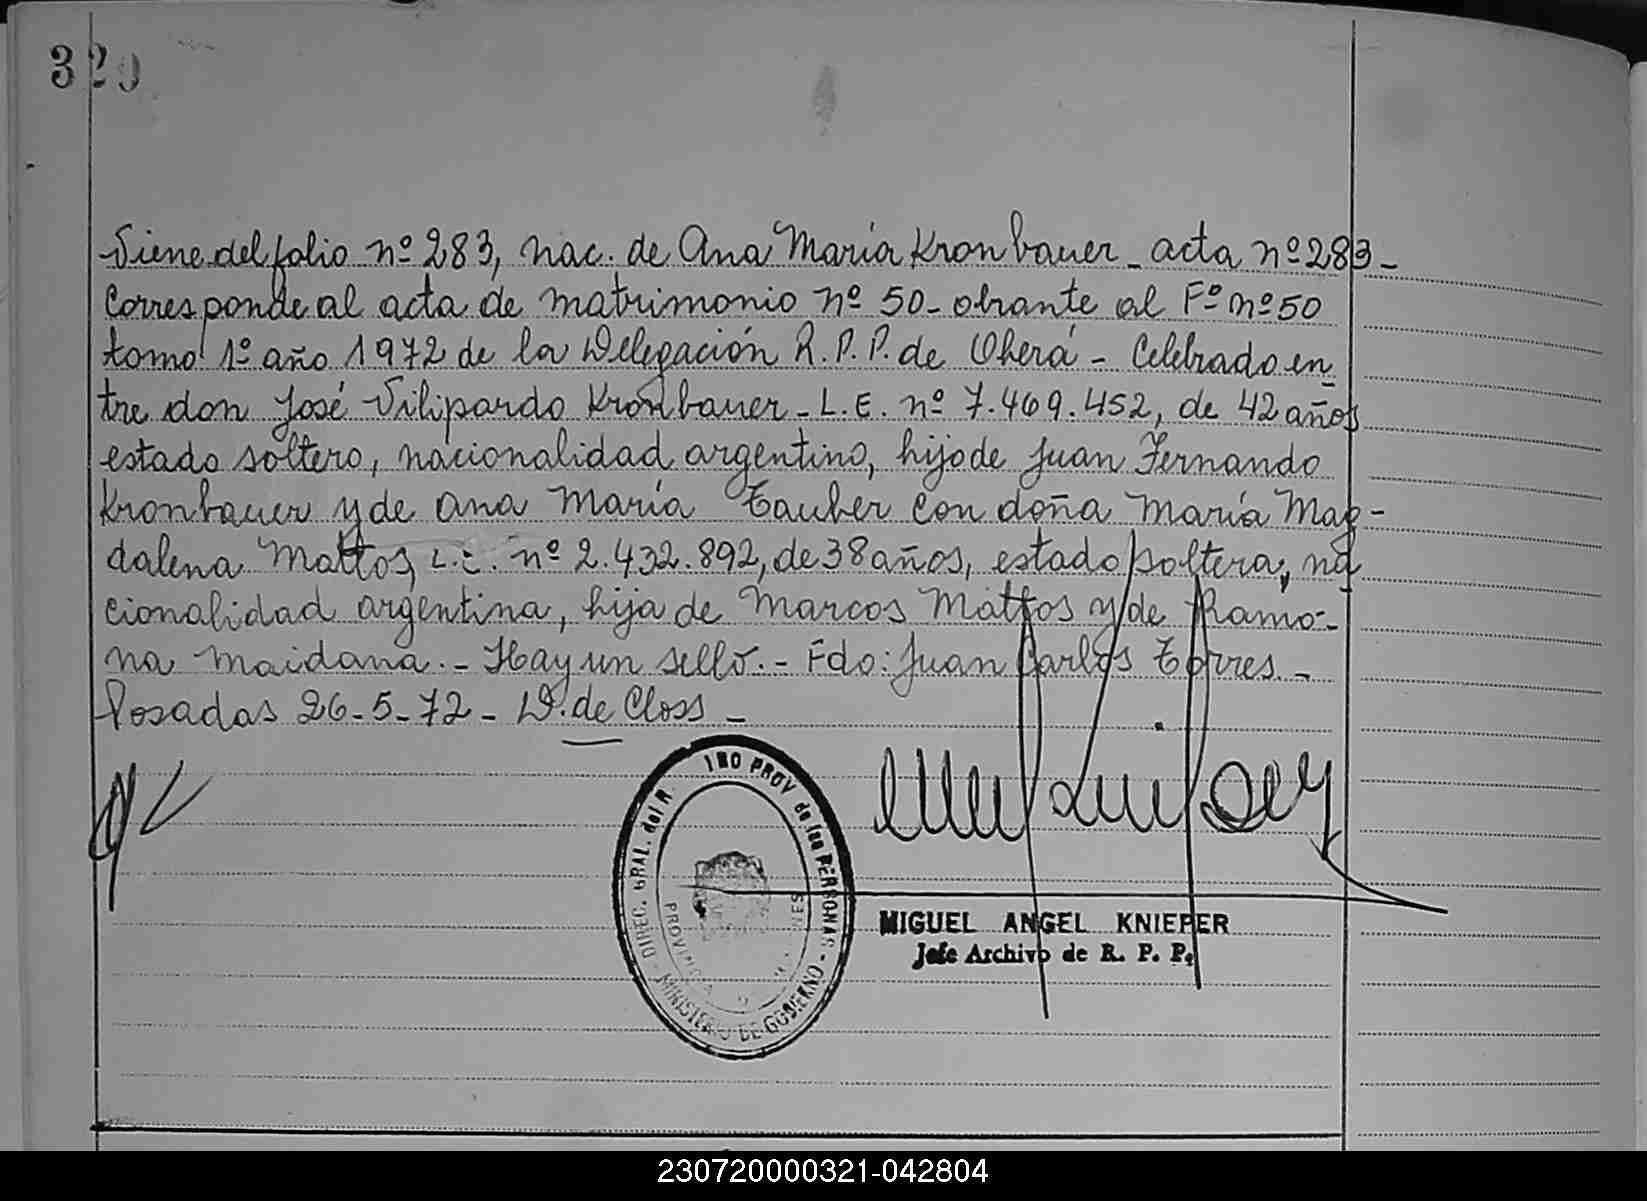 320
Viene del folio nº 283, nac. de Ana María Kronbauer - acta nº 283 -
Corresponde al acta de matrimonio nº 50 - obrante al Fº nº 50
tomo 1º año 1972 de la Delegación R.P.P. de Oberá - Celebrado en
tre don José Vilipardo Kronbauer - L.E. nº 7.469.452, de 42 años
estado soltero, nacionalidad argentino, hijo de Juan Fernando
Kronbauer y de Ana María Tauber con doña María Mag-
dalena Mattos, L.C. nº 2.432.892, de 38 años, estado soltera, na
cionalidad argentina, hija de Marcos Mattos y de Ramo-
na Maidana. - Hay un sello. - Fdo: Juan Carlos Torres. -
Posadas 26-5-72 - D. de Closs -
DIREC. GRAL. del R PROV de las PERSONAS
MINISTERIO DE GOBIERNO
MIGUEL ANGEL KNIEPER
Jefe Archivo de R. P. P.
230720000321-042804